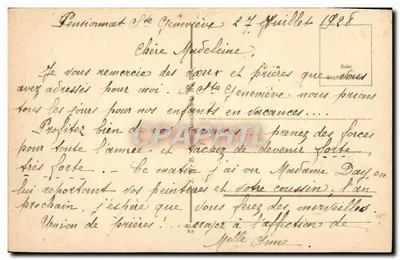 Pensionnat Ste Geneviève 27 Juillet 1928
Chère Madeleine,
Je vous remercie des vœux et prières que vous
avez adressés pour moi. A Ste Geneviève nous prions
tous les jours pour nos enfants en vacances....
Profitez bien de vos vacances, prenez des forces
pour toute l'année et tachez de devenir forte
très forte... Ce matin j'ai vu Madame en
lui reportant vos peintures et votre coussin. L'an
prochain, j'espère que vous ferez des merveilles.
Union de prières! à l'affection de
Melle Anne